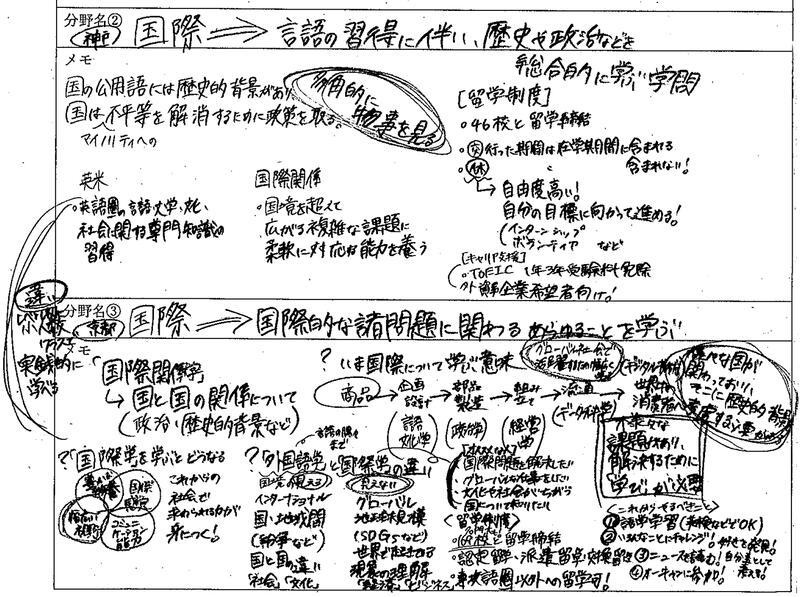 分野名②
神戸
国際 ⇒ 言語の習得に伴い、歴史や政治などを
総合的に学ぶ学問
メモ
国の公用語には歴史的背景があり
国は不平等を解消するために政策を取る。
マイノリティへの
多角的に
物事を見る
英米
・英語圏の言語・文学、文化、
社会に関する専門知識の
習得
国際関係
・国境を超えて
広がる複雑な課題に
柔軟に対応な能力を養う
[留学制度]
・46校と留学締結
・行った期間は在学期間に含まれる
・休 〃 含まれない!
→自由度高い!
自分の目標に向かって進める!
(インターンシップ
ボランティア など
[キャリア支援]
・TOEIC 1年3年受験料免除
外資系企業希望者向け!
違い
少人数
クラスで
実践的に
学べる
分野名③
京都
国際 ⇒ 国際的な諸問題に関わるあらゆることを学ぶ
メモ
「国際関係学」
→国と国の関係について
(政治、歴史的背景など)
?いま国際について学ぶ意味
グローバル社会で
商品→企画設計→部品製造→組み立て→流通→世界中の消費者へ
(言語文化学)
(政治学)
(経営学)
(データ科学)
様々な国が
関わっており、
そこに歴史的背景
不安な
課題があり、
解決するために
「学び」が必要
?国際学を学ぶとどうなる
これからの
社会で
求められる力が
身につく!
国際感覚
コミュニケーション能力
?外国語学と国際学の違い
国境見える
インターナショナル
国・地域間
(紛争など)
国と国の違い
社会」「文化」
見えない
グローバル
地球規模
(SDGsなど)
世界で起きてる
現象の理解
ビジネス」
国際問題を解決したい
グローバルな仕事をしたい
文化や社会のちがう
国について知りたい
〈留学制度〉
校と留学締結
・認定留学・派遣留学・交換留学
・英語圏以外への留学可!
〈これからやるべきこと〉
①語学学習(英検などでOK)
②いろんなことにチャレンジ!→好きを発見!
③ニュースを読む!自分事として考える!
④オーキャンに参加!